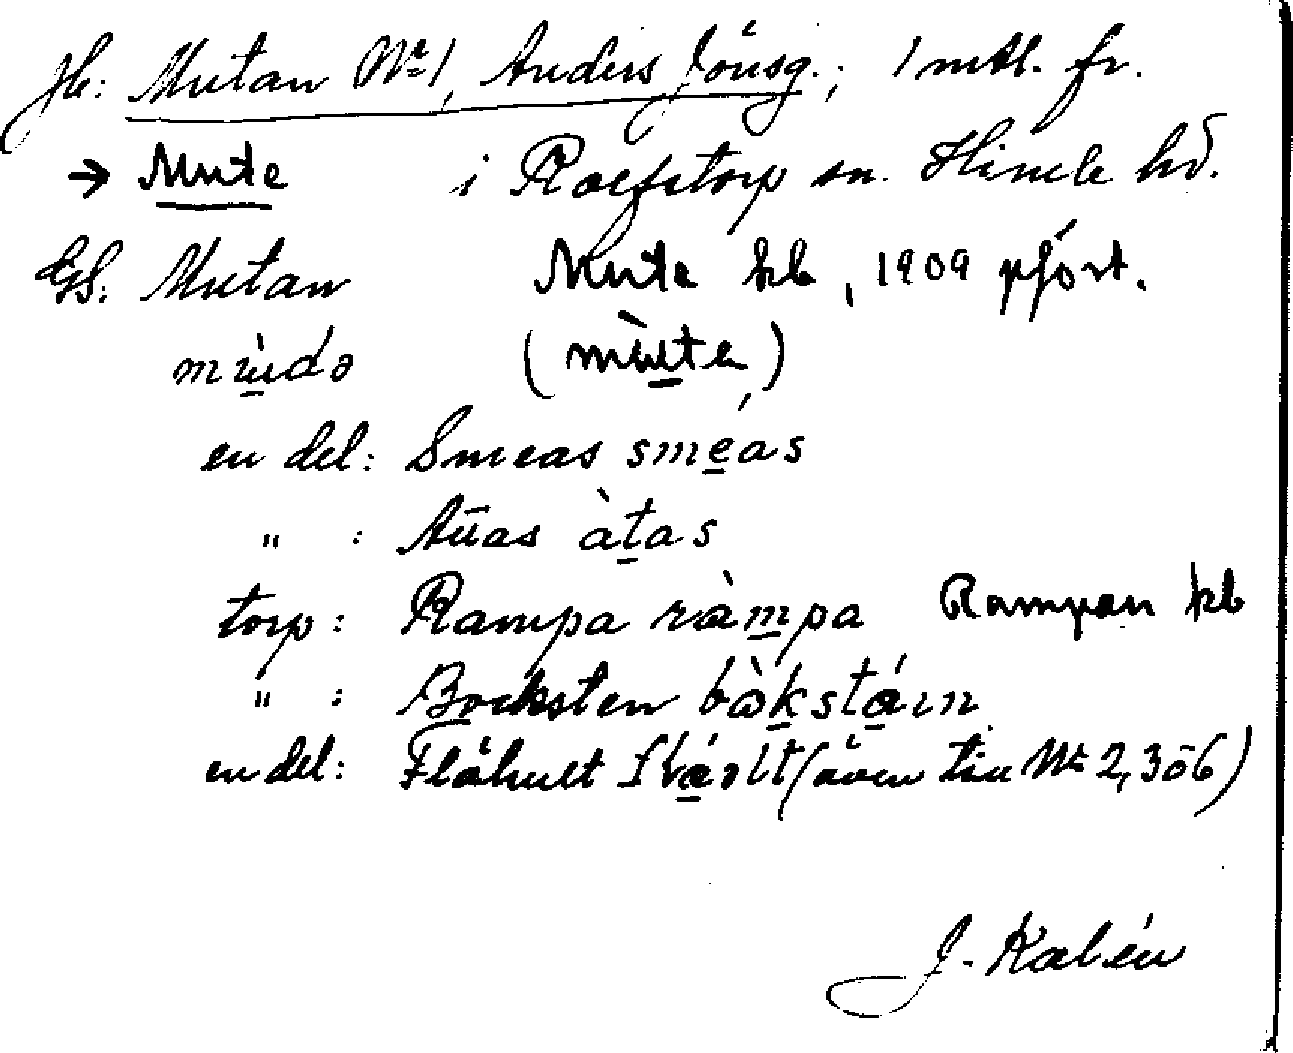 Jb: Mutan No 1, Anders Jönsg.; 1 mtl. fr.
→ Mute i Rolfstorp sn. Himle hd.
GS: Mutan Mute kb, 1909 pfört.
mùdə (mùte)
en del: Smeas sméas
" : Attas àtas
torp: Rampa ràmpa Rampan kb
" : Bocksten bàkstáin
en del: Flåhult (även till No 2, 3 o 6)
J. Kalén